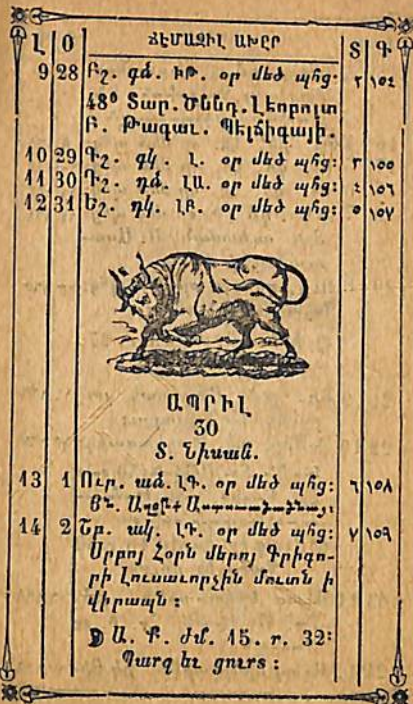 Լ Օ ՃԷՄԱԶԻԼ ԱԽԸՐ Տ Գ
9 28 Բշ. գձ. ԻԹ. օր մեծ պհց: ٢ ١٥٤
48° Տար. Ծննդ. Լէոբոլտ
Բ. Թագաւ. Պելճիգայի.
10 29 Գշ. գկ. Լ. օր մեծ պհց: ٣ ١٥٥
11 30 Դշ. դձ. ԼԱ. օր մեծ պհց: ٤ ١٥٦
12 31 Եշ. դկ. ԼԲ. օր մեծ պհց: ٥ ١٥٧
ԱՊՐԻԼ
30
Տ. Նիսան.
13 1 Ուր. աձ. ԼԳ. օր մեծ պհց: ٦ ١٥٨
14 2 Շբ. ակ. ԼԴ. օր մեծ պհց: ٧ ١٥٩
Սրբոյ Հօրն մերոյ Գրիգո-
րի Լուսաւորչին մուտն ի
վիրապն :
Ա. Ք. ժմ. 15. r. 32:
Պարզ եւ ցուրտ :